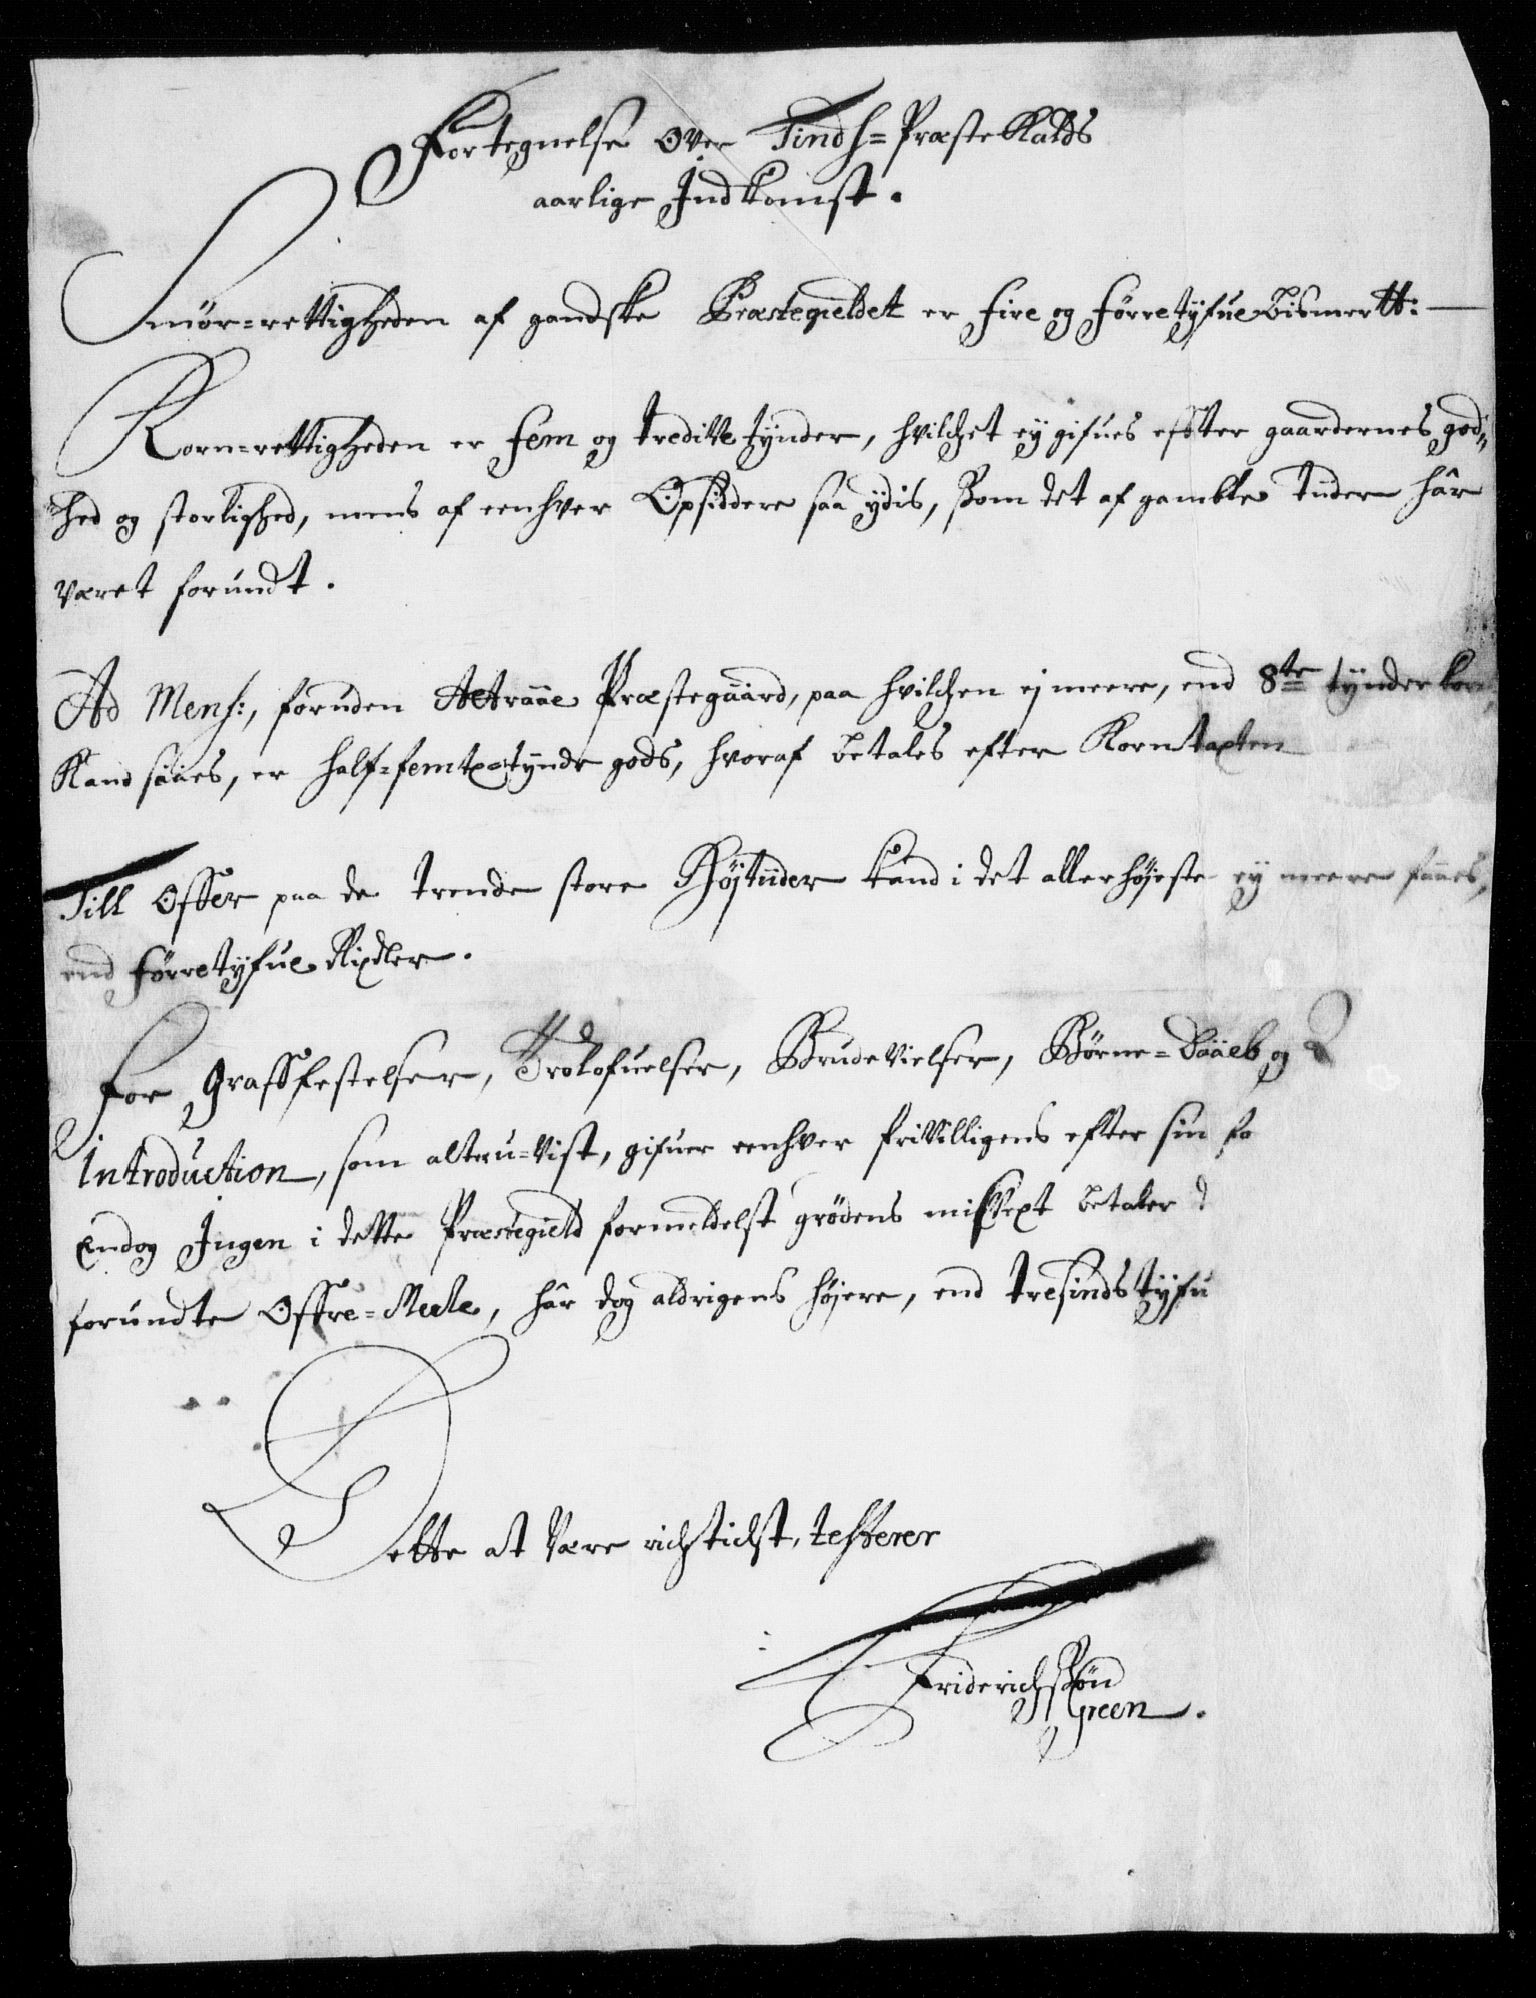 Fortegnelse over Tinds=Præste Kalds
aarlige Indkomst.
Smör=rettigheden af gandske Præstegieldet er fire og förretyfue Bismertt:
Korn=rettigheden er fem og treditte tynder, hvilchet ey gifues effter gaardernes god„
hed og storlighed, mens af eenhver Opsiddere saa ydis, som det af gamble tider hâr
været forundt.
Ad Mens:, foruden Præstegaard, paa hvilchen ej meere, end 8te tynder korn
Kand sååes, er half=femte tynde gods, hvoraf betales efter Korntaxten
Till Offer paa de trende store Höjtider kand i det allerhöjeste ey meere fåaes,
end förretyfue Rixdler.
For Graffestelser, Trolofuelser, Brudevielser, Börne=Dååb og
Introduction, som alt er u=vist, gifuer eenhver frivilligens efter sin fo
Endog Ingen i dette Præstegield formedelst grödens misvext betaler d
forundte Offre=Meele, hâr dog aldrigens höjere, end tresindstyfu
Dette at være richtichst, testerer
Friderichssön
Green.